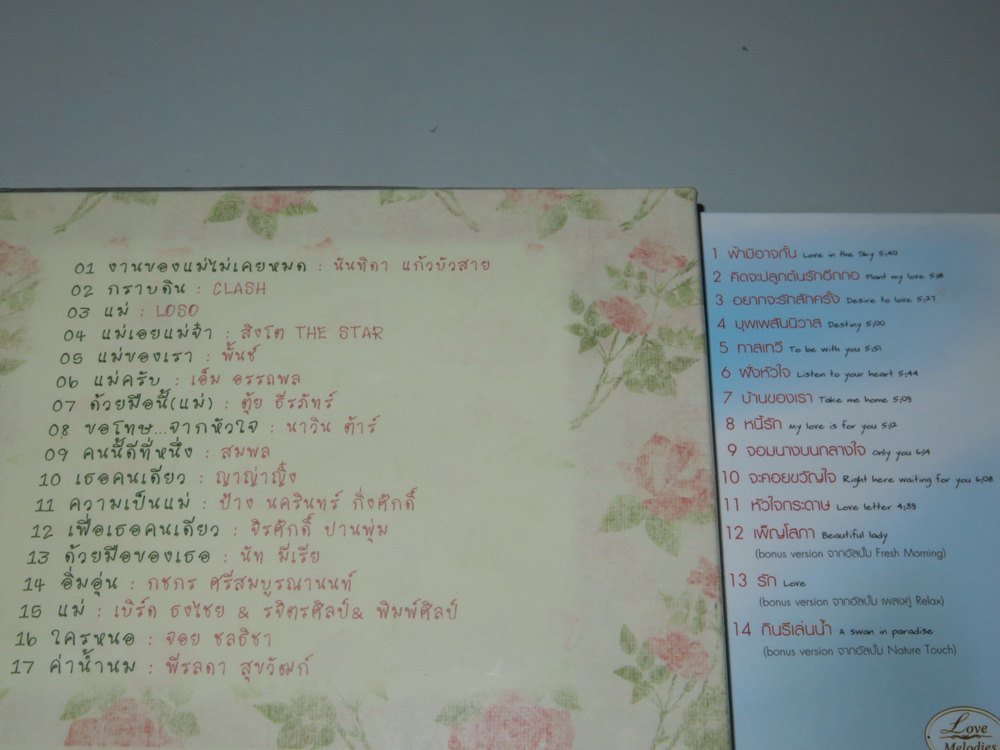 01 งานของแม่ไม่เคยหมด : นันทิดา แก้วบัวสาย
02 กราบดิน : CLASH
03 แม่ : LOSO
04 แม่เอยแม่จ๋า : สิงโต THE STAR
05 แม่ของเรา : พั้นช์
06 แม่ครับ : เอ็ม อรรถพล
07 ด้วยมือนี้(แม่) : ตุ้ย ธีรภัทร์
08 ขอโทษ...จากหัวใจ : นาวิน ต้าร์
09 คนนี้ดีที่หนึ่ง : สมพล
10 เธอคนเดียว : ญาญ่าญิ๋ง
11 ความเป็นแม่ : ป้าง นครินทร์ กิ่งศักดิ์
12 เพื่อเธอคนเดียว : จิรศักดิ์ ปานพุ่ม
13 ด้วยมือของเธอ : นัท มีเรีย
14 อิ่มอุ่น : กชกร ศรีสมบูรณานนท์
15 แม่ : เบิร์ด ธงไชย & รจิตรศิลป์& พิมพ์ศิลป์
16 ใครหนอ : จอย ชลธิชา
17 ค่าน้ำนม : พีรลดา สุขวัฒก์
1 ฟ้ามิอาจกั้น Love in the Sky 5:40
2 คิดจะปลูกต้นรักอีกกอ Plant my love 5:18
3 อยากจะรักสักครั้ง Desire to love 5:27
4 บุพเพสันนิวาส Destiny 5:00
5 กาสะเทวี To be with you 5:51
6 ฟังหัวใจ Listen to your heart 5:44
7 บ้านของเรา Take me home 5:09
8 หนี้รัก My love is for you 5:12
9 จอมนางบนกลางใจ Only you 6:14
10 จะคอยขวัญใจ Right here waiting for you 6:08
11 หัวใจกระดาษ Love letter 4:39
12 เพ็ญโสภา Beautiful lady
(bonus version จากอัลบั้ม Fresh Morning)
13 รัก Love
(bonus version จากอัลบั้ม เพลงคู่ Relax)
14 กินรีเล่นน้ำ A swan in paradise
(bonus version จากอัลบั้ม Nature Touch)
Love
Melodies